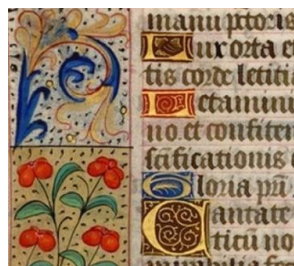 manu pctoris
Lux orta e
tis corde letitia
Letamini i
no et confitem
scificationis e
Gloria pri
Cantate
ticu no
mirabilia fec